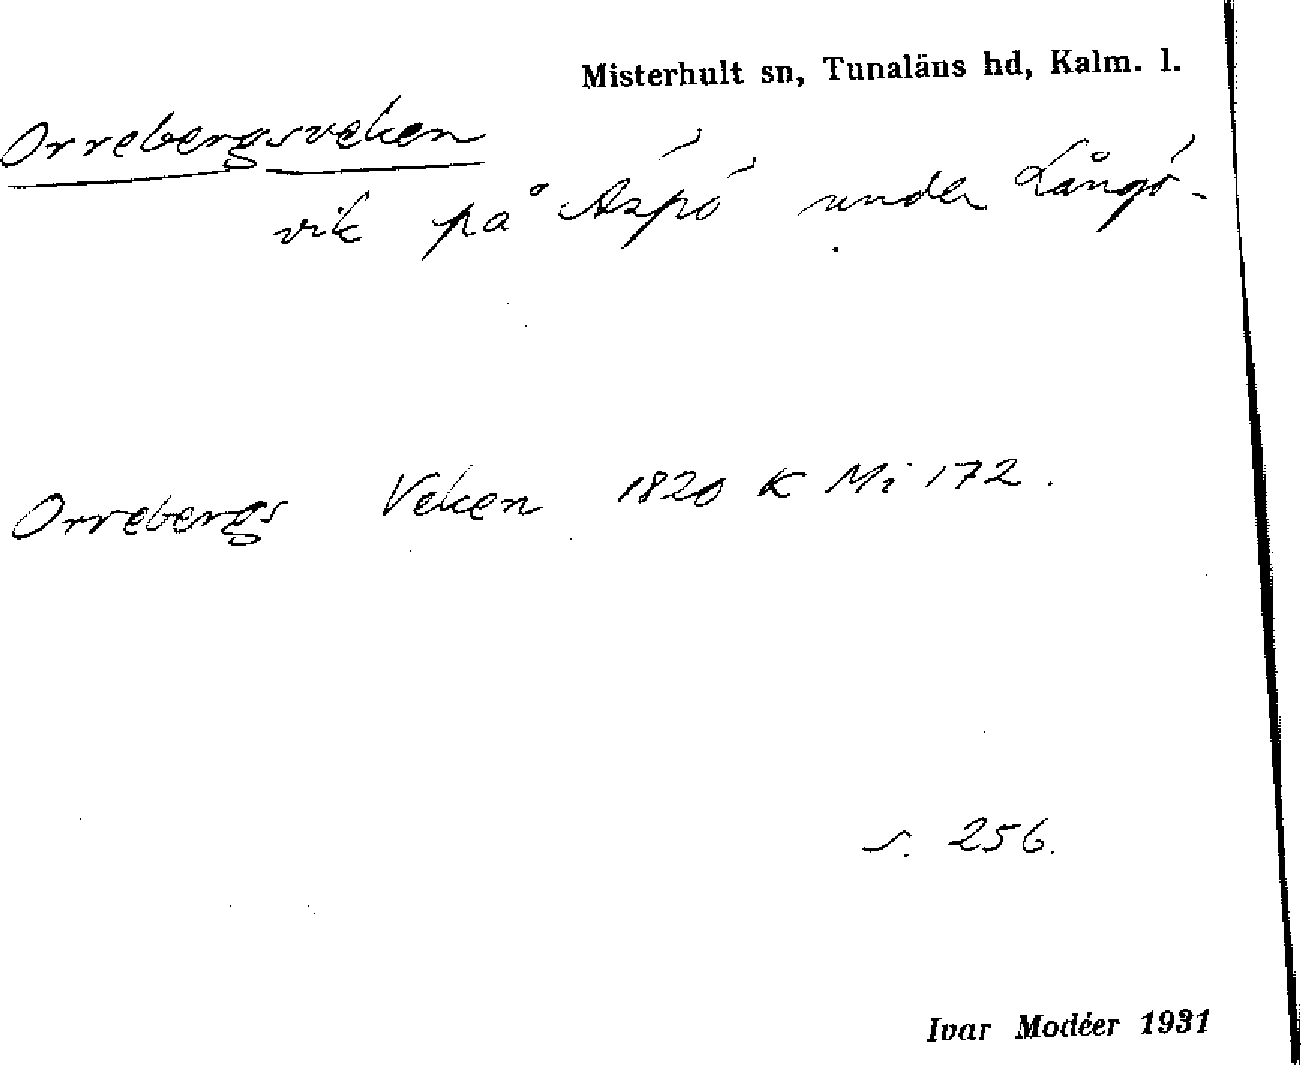 Misterhult sn, Tunaläns hd, Kalm. l.
Orrebergsveken
vik på Äspö under Långö.
Orrebergs Veken 1820 K Mi 172.
s. 256.
Ivar Modéer 1931